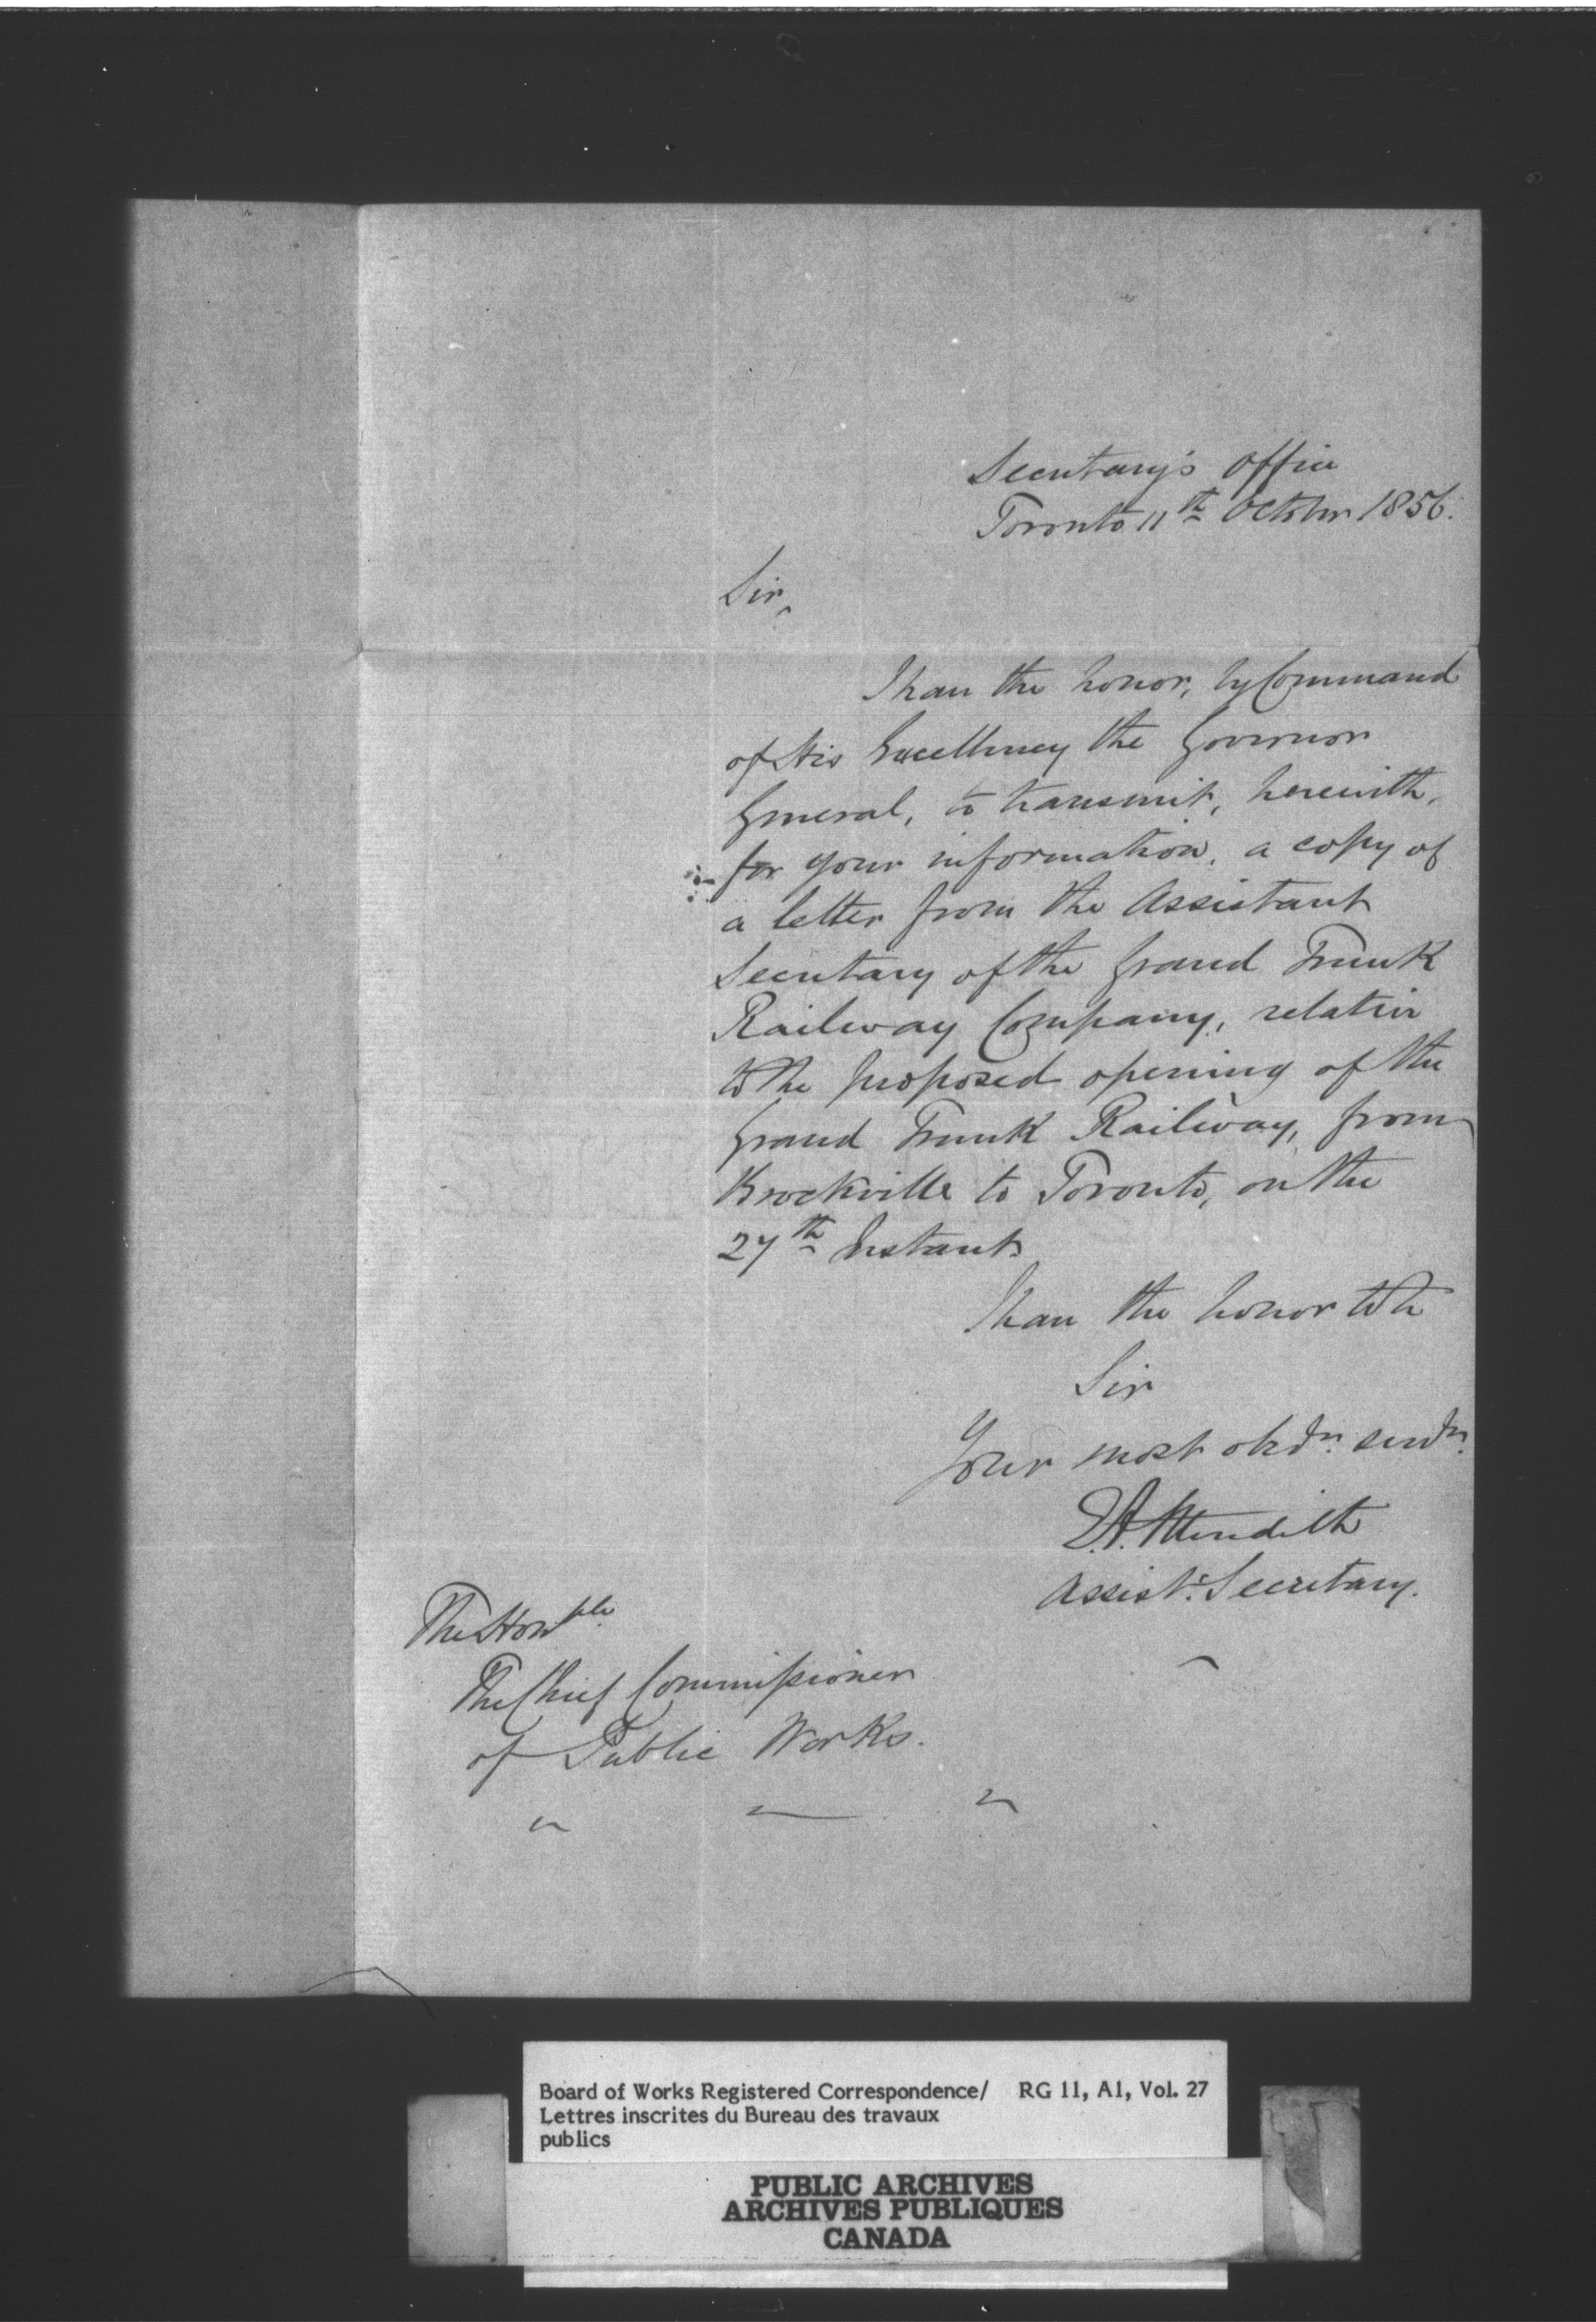 Secretary's Office
Toronto 11th October 1856.
Sir,
I have the honor, by Command
of His Excellency the Governor
General, to transmit, herewith,
for your information, a copy of
a letter from the Assistant
Secretary of the Grand Trunk
Railway Company, relative
to the proposed opening of the
Grand Trunk Railway, from
Brockville to Toronto, on the
27th Instant.
I have the honor to be
Sir
Your most obdt. servt.
E.A. Meredith
Assist. Secretary.
The Honble.
The Chief Commissioner
of Public Works.
Board of Works Registered Correspondence/ RG 11, A1, Vol. 27
Lettres inscrites du Bureau des travaux
publics
PUBLIC ARCHIVES
ARCHIVES PUBLIQUES
CANADA